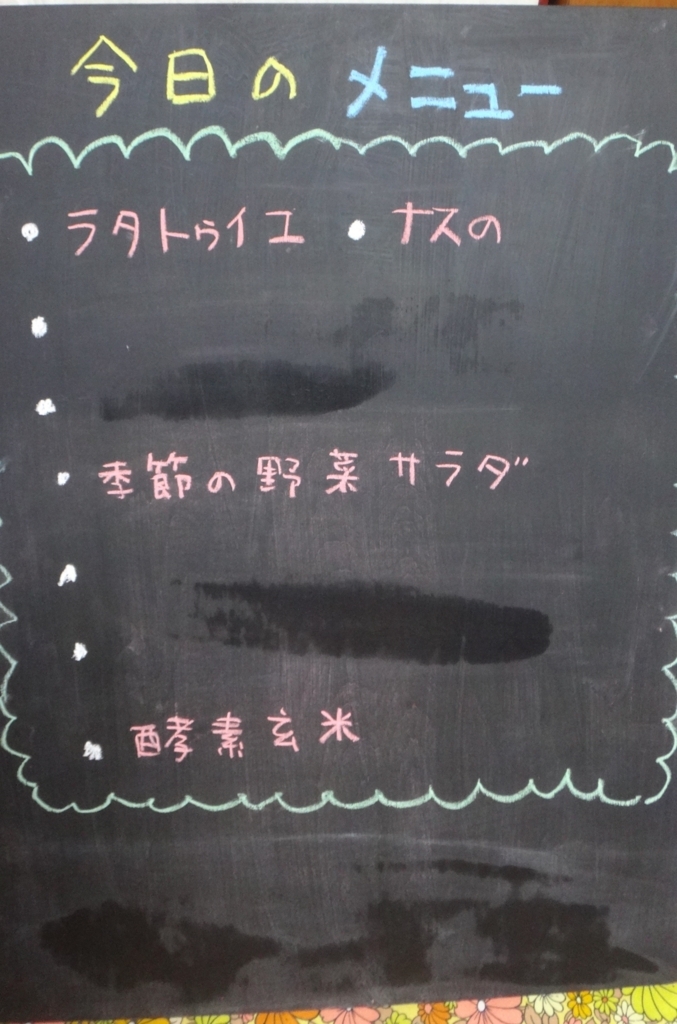 今日のメニュー
・ラタトゥイエ ・ナスの
・
・
・季節の野菜サラダ
・
・
・酵素玄米